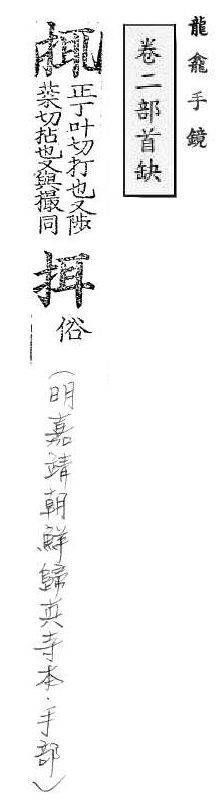 龍龕手鏡
卷二部首缺
正丁叶切打也又陟
葉切拈也又與撮同
挕 俗
（明嘉靖朝鮮歸真寺本·手部）